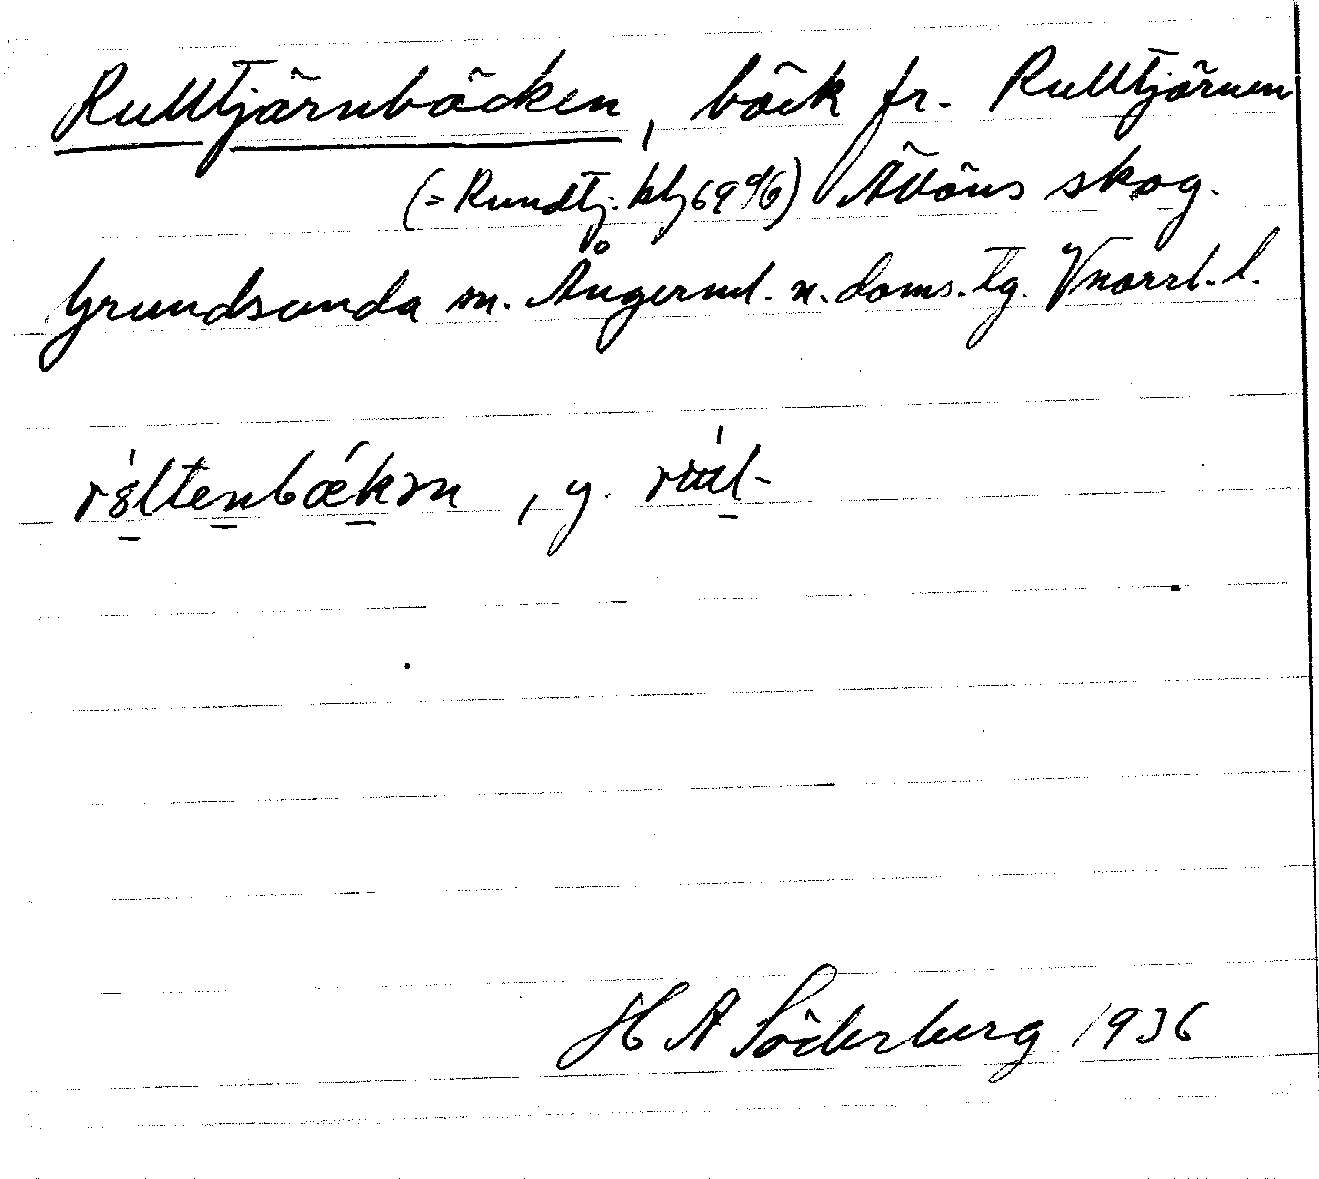 Rulltjärnbäcken, bäck fr. Rulltjärnen
(= Rundtj. blj 69 Åvöns skog.
Grundsunda sn. Ångerml. n. doms. tg. Vnorrl. l.
, y.
H A Söderberg 1936